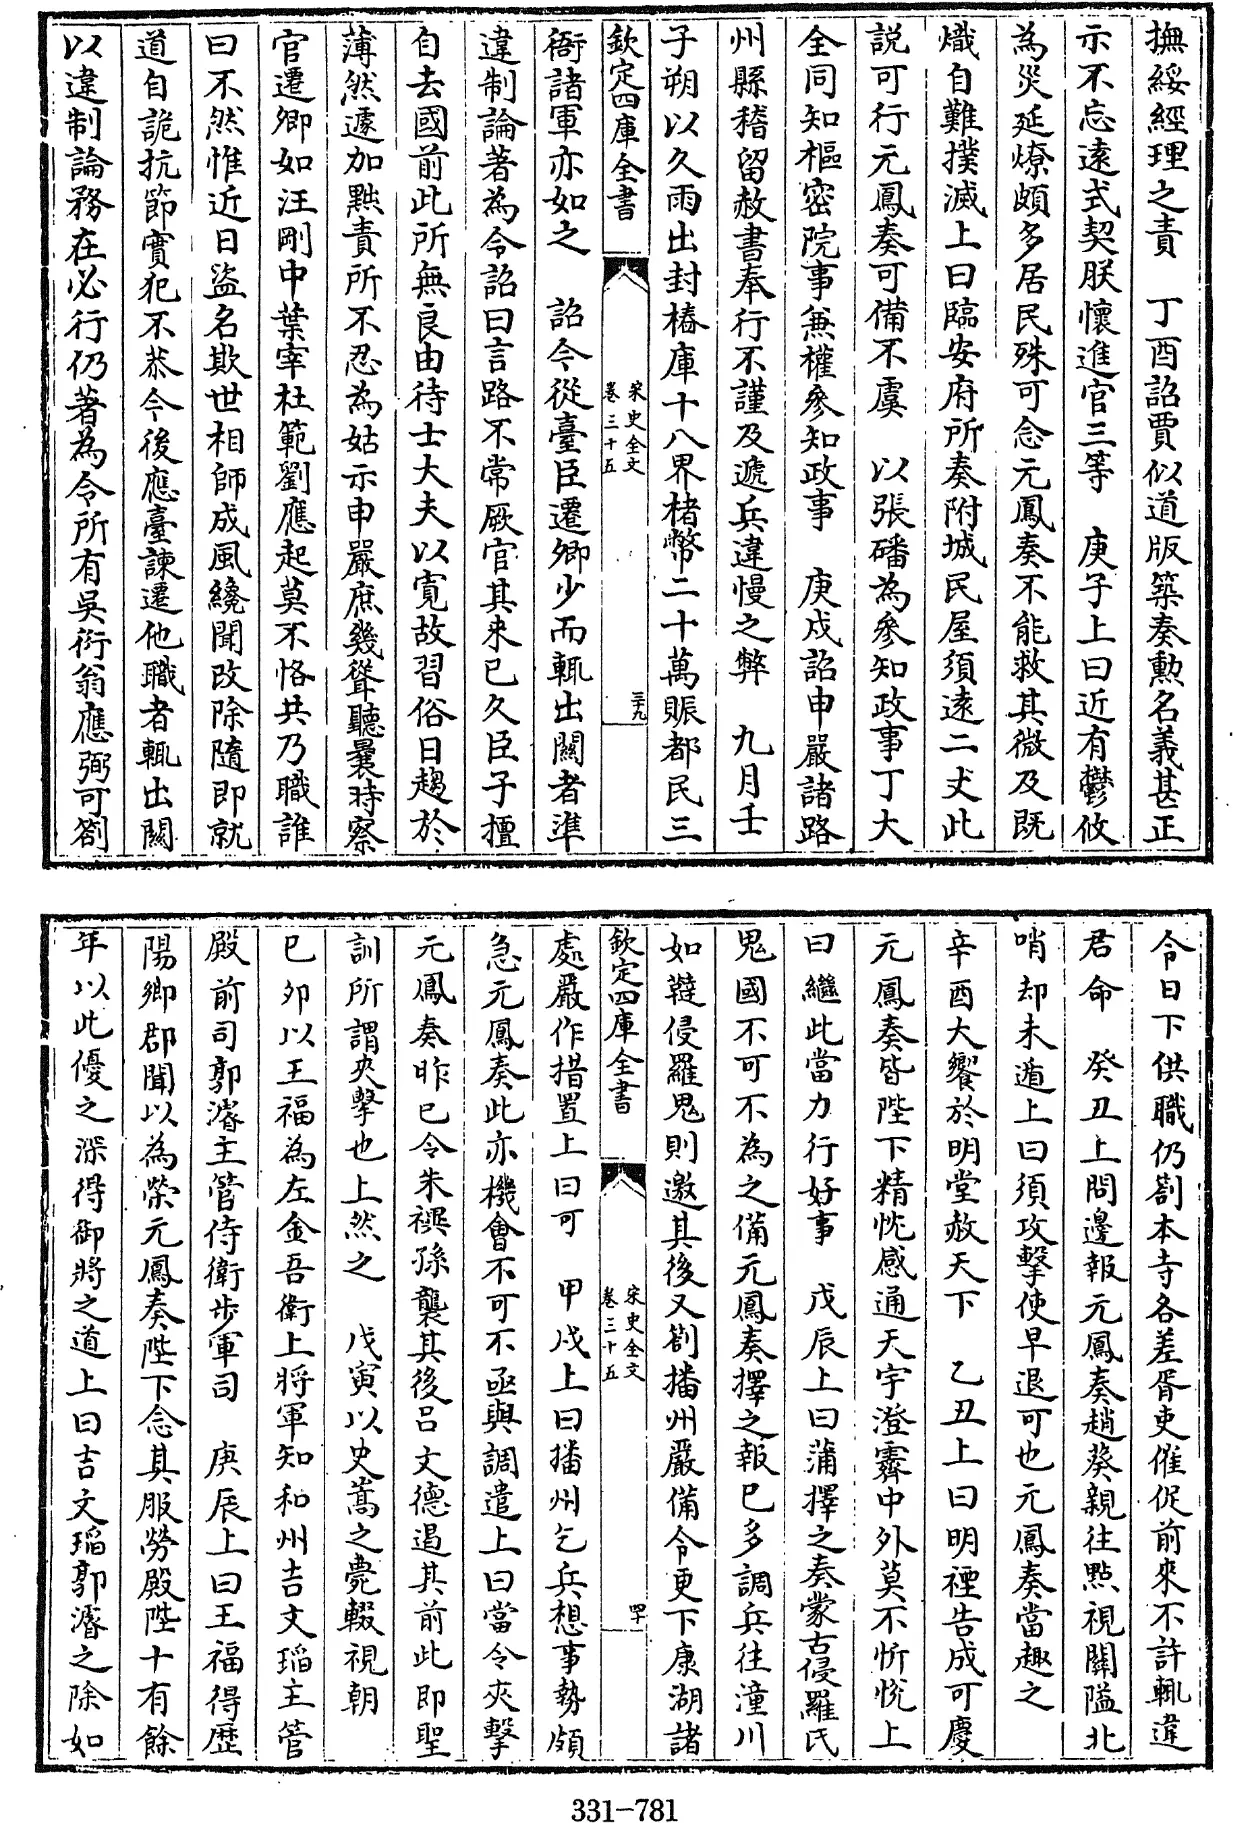 撫綏經理之責　丁酉詔賈似道版築奏勲名義甚正
示不忘逺式契朕懷進官三等　庚子上曰近有鬱攸
為災延燎頗多居民殊可念元鳳奏不能救其微及既
熾自難撲滅上曰臨安府所奏附城民屋須逺二丈此
説可行元鳳奏可備不虞　以張磻為參知政事丁大
全同知樞密院事兼權參知政事　庚戌詔申嚴諸路
州縣稽留赦書奉行不謹及遞兵違慢之弊　九月壬
子朔以久雨出封樁庫十八界楮幣二十萬賑都民三
欽定四庫全書
宋史全文
卷三十五
三十九
衙諸軍亦如之　詔今從臺臣遷卿少而輒出闗者準
違制論著為令詔曰言路不常厥官其來已久臣子擅
自去國前此所無良由待士大夫以寛故習俗日趨於
薄然遽加黜責所不忍為姑示申嚴庶幾聳聽曩時察
官遷卿如汪剛中葉宰杜範劉應起莫不恪共乃職誰
曰不然惟近日盜名欺世相師成風纔聞改除隨即就
道自詭抗節實犯不恭今後應臺諫遷他職者輒出闗
以違制論務在必行仍著為令所有吳衍翁應弼可劄
令日下供職仍劄本寺各差胥吏催促前來不許輒違
君命　癸丑上問邊報元鳳奏趙葵親往點視闗隘北
哨却未遁上曰須攻擊使早退可也元鳳奏當趣之
辛酉大饗於明堂赦天下　乙丑上曰明禋告成可慶
元鳳奏皆陛下精忱感通天宇澄霽中外莫不忻悦上
曰繼此當力行好事　戊辰上曰蒲擇之奏蒙古侵羅氏
鬼國不可不為之備元鳳奏擇之報已多調兵往潼川
如韃侵羅鬼則邀其後又劄播州嚴備令更下康湖諸
欽定四庫全書
宋史全文
卷三十五
四十
處嚴作措置上曰可　甲戌上曰播州乞兵想事勢頗
急元鳳奏此亦機會不可不亟與調遣上曰當令夾擊
元鳳奏昨已令朱禩孫襲其後吕文德遏其前此即聖
訓所謂夾擊也上然之　戊寅以史嵩之薨輟視朝
已夘以王福為左金吾衛上將軍知和州吉文瑫主管
殿前司郭濬主管侍衛步軍司　庚辰上曰王福得歴
陽卿郡聞以為榮元鳳奏陛下念其服勞殿陛十有餘
年以此優之深得御將之道上曰吉文瑫郭濬之除如
331-781